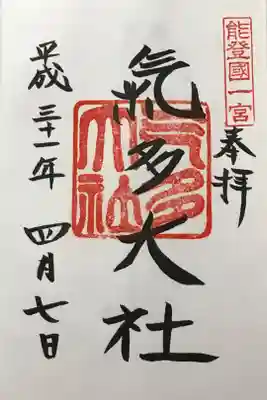 能登國一宮
奉拝
氣多大社
氣多大社
平成三十一年 四月七日